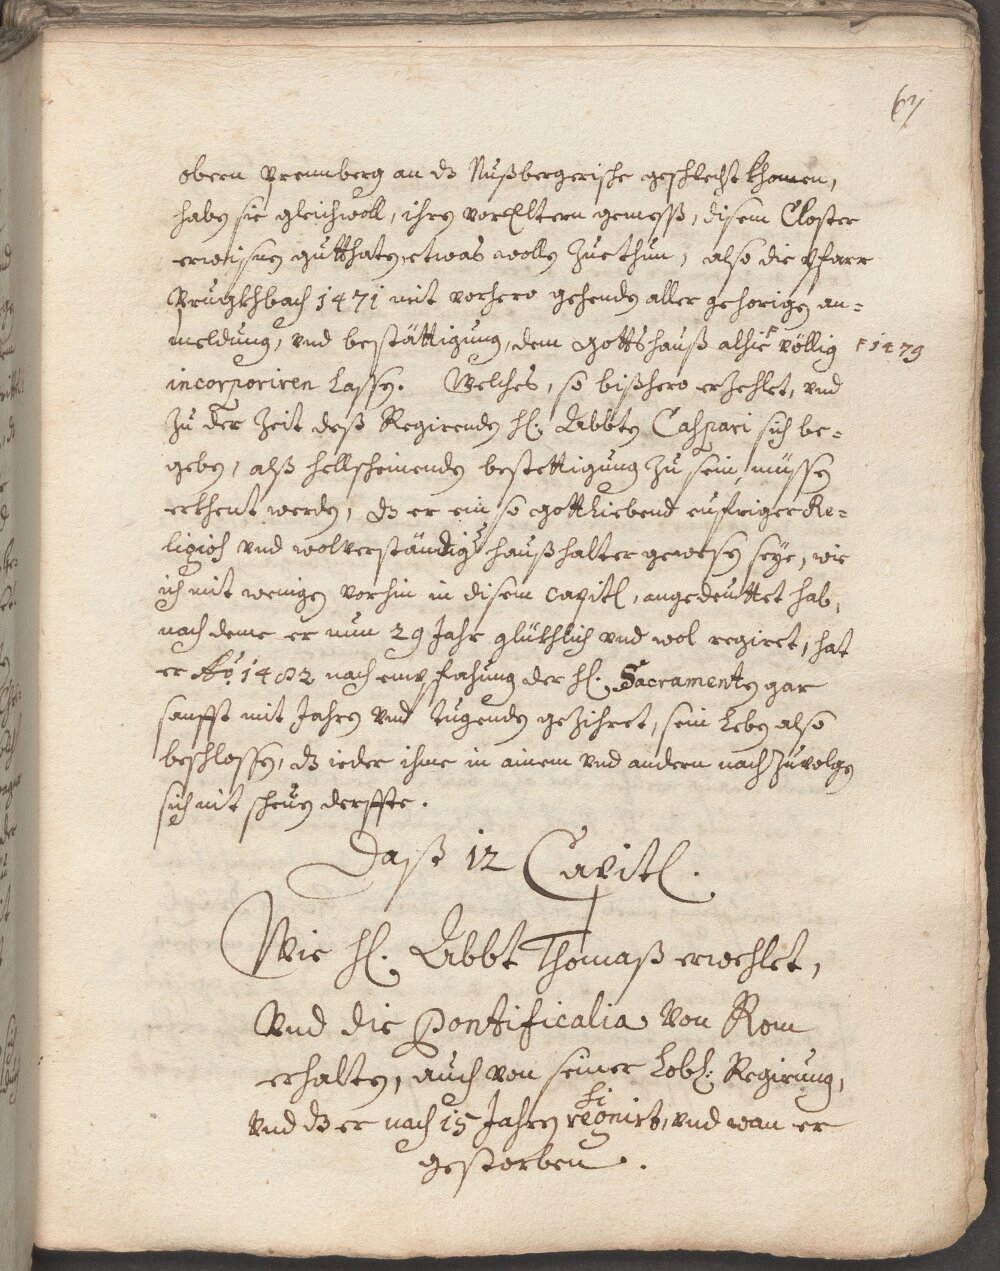 67
obern Prennberg an dz Nußbergerische geschlecht khomen,
haben sie gleichwoll, ihren vorEltern gemeß, disem Closter
erwisnen gutthaten, etwas wollen zuethun, also die Pfarr
Prugkhbach 1471 mit vorhero gehenden aller gehorigen an=
meldung, vnd bestättigung, dem gottshauß alhie völlig
1479
incorporiren lassen. Welches, so bißhero erzehlet, vnd
zu der Zeit deß Regirenden H: Abbten Caspari sich be=
geben, alß hellscheinenden bestettigung zu sein, müssen
erkhent werden, dz er ein so gottliebend eyfriger Re=
ligios vnd wolverständiger haußhalter gewesen seye, wie
ich mit wenigen vorhin in disem Capitl, angedeuttet hab,
nach deme er nun 29 Jahr glükhlich vnd wol regiret, hat
er Ao: 1482 nach empfahung der Hl: Sacramenten gar
sanfft mit Jahren vnd tugenden gezihret, sein Leben also
beschlossen, dz ieder ihme in ainem vnd andern nachzuvolgen
sich nit scheuen derffte.
Daß 12 Capitl.
Wie H: Abbt Thomaß erwehlet,
Vnd die Pontificalia von Rom
erhalten, auch von seiner Lobl: Regirung,
vnd dz er nach 15 Jahren resignirt, vnd wan er
gestorben.